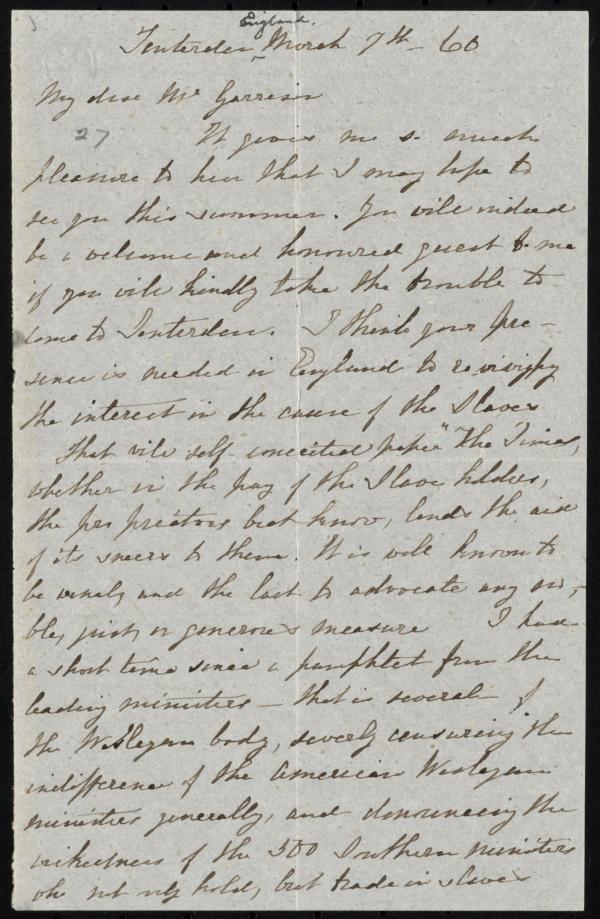 England.
Tenterden March 7th - 60
My dear Mr Garrison
27
It gives me so much
pleasure to hear that I may hope to
see you this summer. You will indeed
be a welcome and honoured guest to me
if you will kindly take the trouble to
come to Tenterden. I think your pre-
sence is needed in England to revivify
the interest in the cause of the Slaves
That vile self-conceited paper "The Times,
whether in the pay of the Slave holders,
the proprietors best know, lends the aid
of its sneers to them. It is well known to
be venal, and the last to advocate any no-
ble, just, or generous measure I had
a short time since a pamphlet from the
leading ministers - that is several of
the Wesleyan body, severly censuring the
indifference of the American Wesleyan
ministers generally, and denouncing the
wickedness of the 500 Southern ministers
who not only hold, but trade in slaves